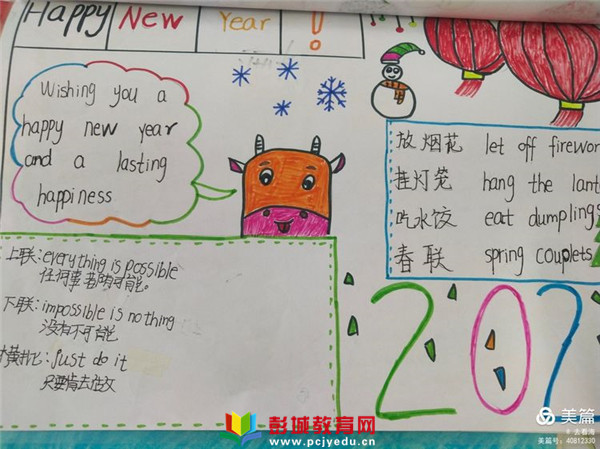 Happy New Year !
Wishing you a
happy new year
and a lasting
happiness
放烟花 let off firewor
挂灯笼 hang the lant
吃水饺 eat dumplings
春联 spring couplets
上联:everything is possible
任何事都有可能。
下联:impossible is nothing
没有不可能
横批:Just do it
只要肯去做
202
彭城教育网
www.pcjyedu.cn
美篇
美篇号:40812330